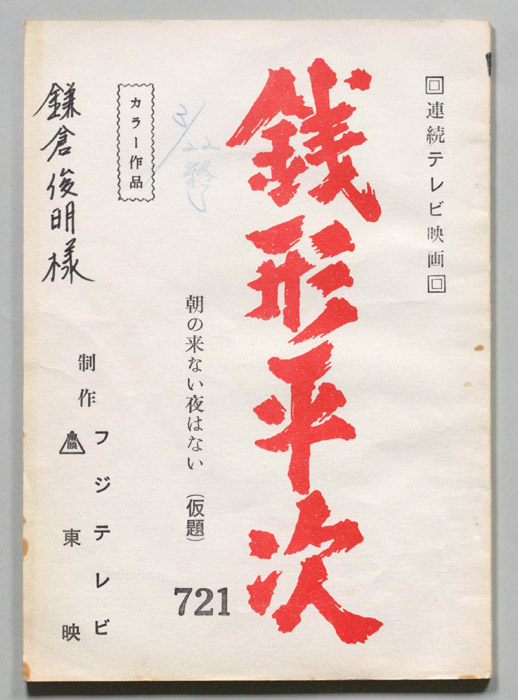 回連続テレビ映画回
銭形平次
朝の来ない夜はない（仮題）
721
3/22終し
カラー作品
鎌倉俊明様
制作
フジテレビ
東映